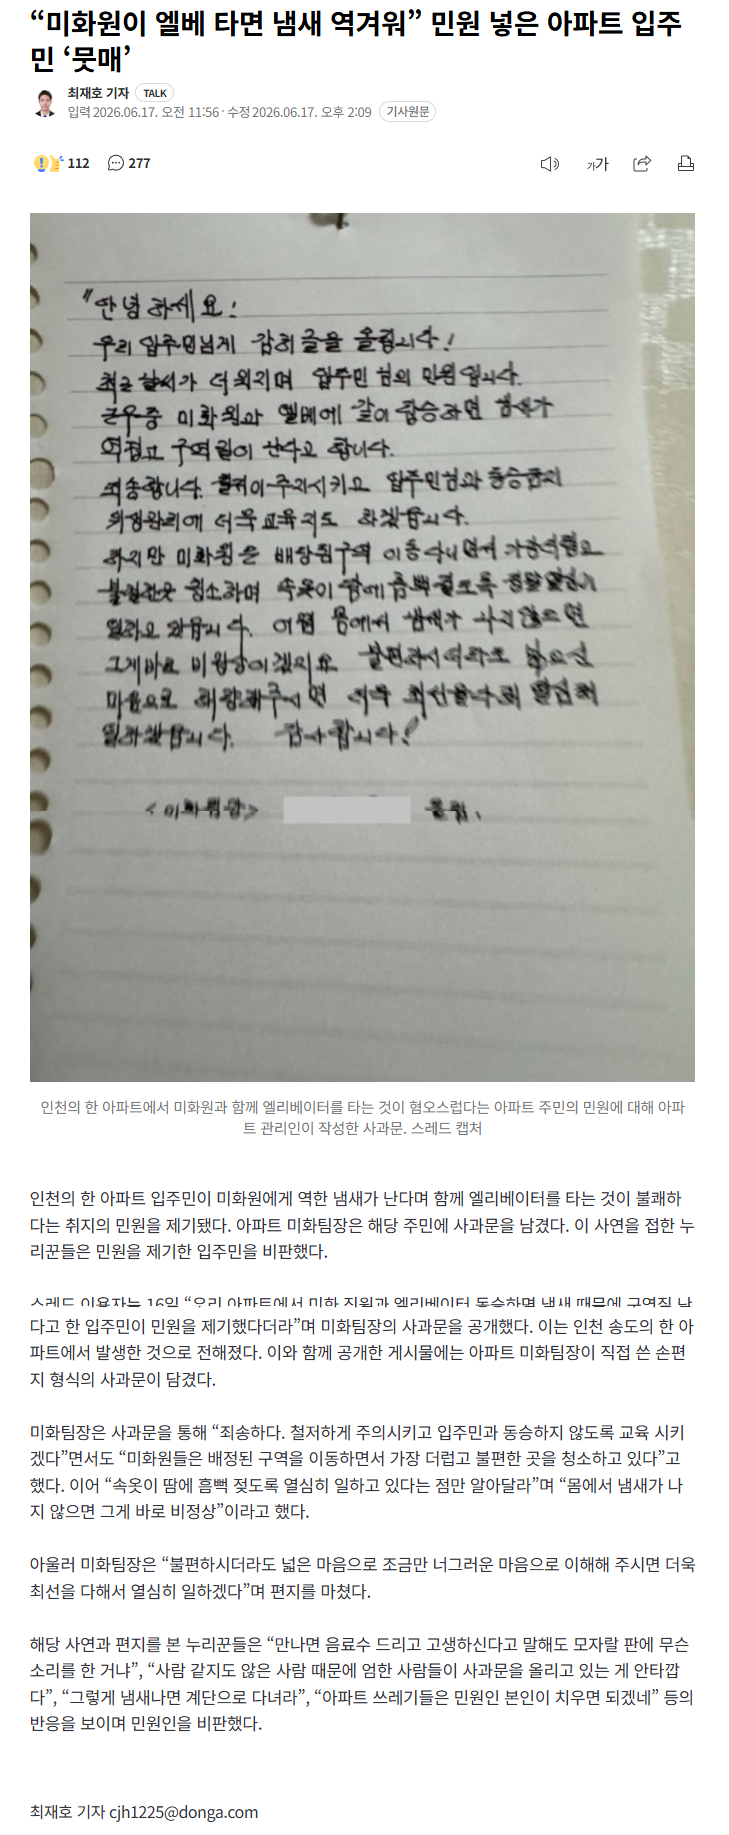 “미화원이 엘베 타면 냄새 역겨워” 민원 넣은 아파트 입주
민 ‘뭇매’
최재호 기자 TALK
입력 2026.06.17. 오전 11:56 · 수정 2026.06.17. 오후 2:09 기사원문
112 277
가가
"안녕하세요!
우리 입주민님게 감히 글을 올립니다!
최근 날씨가 더워지며 입주민 님의 민원입니다.
근무중 미화원과 엘베에 같이 탑승하면 냄새가
역겹고 구역질이 난다고 합니다.
죄송합니다. 주지시키고 입주민님과 동승금지
위생관리에 더욱 교육지도 하겠습니다.
하지만 미화원은 배당된구역 이동하면서 가장더럽고
불결한곳 청소하며 속옷이 땀에 흠뻑 젖도록 정말열심히
일하고 있습니다. 몸에서 냄새가 나지 않으면
그게바로 비정상이겠지요. 불편하시더라도 넓으신
마음으로 주시면 더욱 최선을다해 열심히
일하겠습니다. 감사합니다!
<미화팀장> 올림.
인천의 한 아파트에서 미화원과 함께 엘리베이터를 타는 것이 혐오스럽다는 아파트 주민의 민원에 대해 아파
트 관리인이 작성한 사과문. 스레드 캡처
인천의 한 아파트 입주민이 미화원에게 역한 냄새가 난다며 함께 엘리베이터를 타는 것이 불쾌하
다는 취지의 민원을 제기됐다. 아파트 미화팀장은 해당 주민에 사과문을 남겼다. 이 사연을 접한 누
리꾼들은 민원을 제기한 입주민을 비판했다.
스레드 이용자는 16일 “우리 아파트에서 미화 직원과 엘리베이터 동승하면 냄새 때문에 구역질 난
다고 한 입주민이 민원을 제기했다더라”며 미화팀장의 사과문을 공개했다. 이는 인천 송도의 한 아
파트에서 발생한 것으로 전해졌다. 이와 함께 공개한 게시물에는 아파트 미화팀장이 직접 쓴 손편
지 형식의 사과문이 담겼다.
미화팀장은 사과문을 통해 “죄송하다. 철저하게 주의시키고 입주민과 동승하지 않도록 교육 시키
겠다”면서도 “미화원들은 배정된 구역을 이동하면서 가장 더럽고 불편한 곳을 청소하고 있다”고
했다. 이어 “속옷이 땀에 흠뻑 젖도록 열심히 일하고 있다는 점만 알아달라”며 “몸에서 냄새가 나
지 않으면 그게 바로 비정상”이라고 했다.
아울러 미화팀장은 “불편하시더라도 넓은 마음으로 조금만 너그러운 마음으로 이해해 주시면 더욱
최선을 다해서 열심히 일하겠다”며 편지를 마쳤다.
해당 사연과 편지를 본 누리꾼들은 “만나면 음료수 드리고 고생하신다고 말해도 모자랄 판에 무슨
소리를 한 거냐”, “사람 같지도 않은 사람 때문에 엄한 사람들이 사과문을 올리고 있는 게 안타깝
다”, “그렇게 냄새나면 계단으로 다녀라”, “아파트 쓰레기들은 민원인 본인이 치우면 되겠네” 등의
반응을 보이며 민원인을 비판했다.
최재호 기자 cjh1225@donga.com